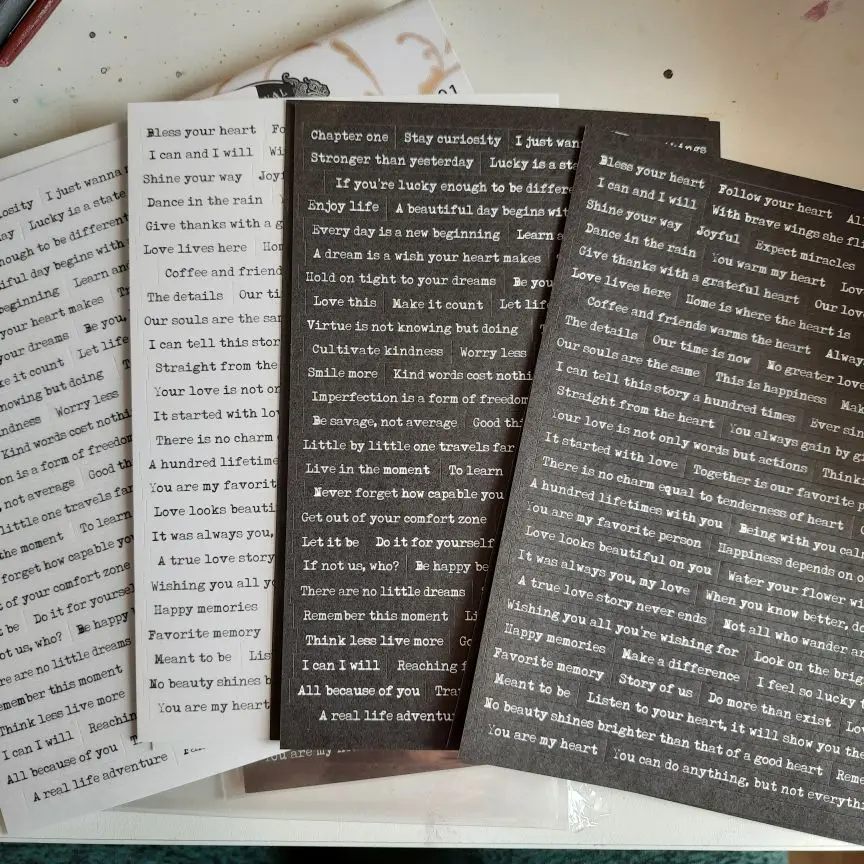 01
I just wanna
Lucky is a state
enough to be different
day begins with
beginning Learn and
your heart makes
your dreams Be you,
it count Let life
knowing but doing
Worry less
Kind words cost nothi
is a form of freedom
not average Good th
little one travels far
the moment To learn
forget how capable you
of your comfort zone
be Do it for yourself
not us, who? Be happy
are no little dreams
Remember this moment
Think less live more
I can I will Reaching
All because of you
A real life adventure
Bless your heart
I can and I will
Shine your way
Dance in the rain
Give thanks with a
Love lives here
Coffee and friend
The details Our ti
Our souls are the sam
I can tell this stor
Straight from the
Your love is not on
It started with lo
There is no charm
A hundred lifetime
You are my favorit
Love looks beauti
It was always you,
A true love story
Wishing you all yo
Happy memories
Favorite memory
Meant to be Lis
No beauty shines b
You are my heart
Chapter one Stay curiosity I just wan
Stronger than yesterday Lucky is a sta
If you're lucky enough to be differe
Enjoy life A beautiful day begins wit
Every day is a new beginning Learn a
A dream is a wish your heart makes
Hold on tight to your dreams Be you
Love this Make it count Let life
Virtue is not knowing but doing
Cultivate kindness Worry less
Smile more Kind words cost nothi
Imperfection is a form of freedom
Be savage, not average Good thi
Little by little one travels far
Live in the moment To learn
Never forget how capable you
Get out of your comfort zone
Let it be Do it for yourself
If not us, who? Be happy be
There are no little dreams
Remember this moment Li
Think less live more Go
I can I will Reaching f
All because of you Tra
A real life adventu
things
Bless your heart Follow your heart All
I can and I will With brave wings she fli
Shine your way Joyful Expect miracles
Dance in the rain You warm my heart Lov
Give thanks with a grateful heart Our lov
Love lives here Home is where the heart is
Coffee and friends warms the heart Alway
The details Our time is now No greater lov
Our souls are the same This is happiness Mak
I can tell this story a hundred times Ever sin
Straight from the heart You always gain by gi
Your love is not only words but actions Think
It started with love Together is our favorite p
There is no charm equal to tenderness of heart
A hundred lifetimes with you Being with you cal
You are my favorite person Happiness depends on o
Love looks beautiful on you Water your flower wi
It was always you, my love When you know better, do
A true love story never ends Not all who wander ar
Wishing you all you're wishing for Look on the brig
Happy memories Make a difference I feel so lucky t
Favorite memory Story of us Do more than exist Lov
Meant to be Listen to your heart, it will show you the
No beauty shines brighter than that of a good heart Reme
You are my heart You can do anything, but not everythi
You are my